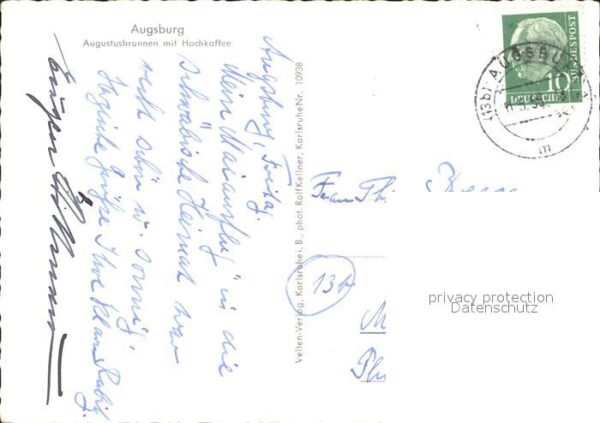 Augsburg
Augustusbrunnen mit Hochkaffee
Augsburg, Freitag.
Mein „Maiausflug" in die
schwäbische Heimat war
recht schön u. sonnig,
Herzliche Grüße Ihre
Velten-Verlag, Karlsruhe i. B., phot. Rolf Kellner, Karlsruhe Nr. 10938
DEUTSCHE BUNDESPOST
10
(13b) AUGSBURG
m
Frau
13b
privacy protection
Datenschutz